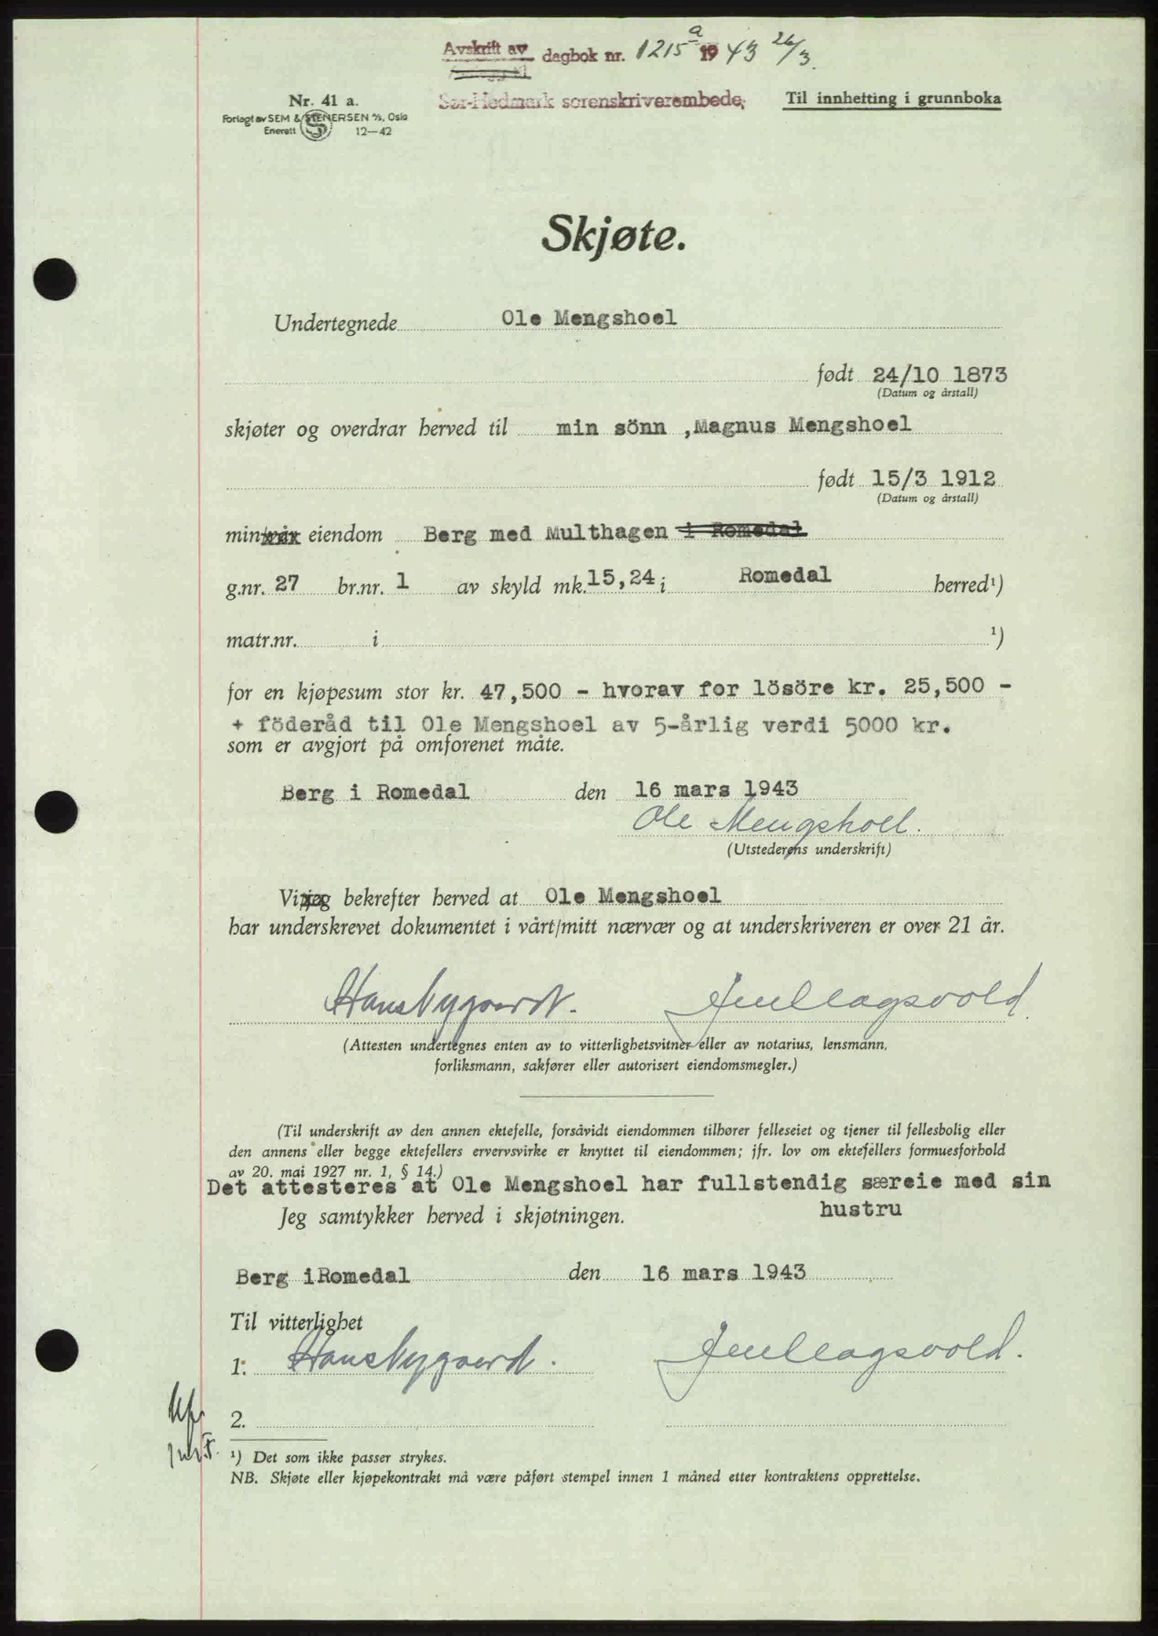 Avskrift av dagbok nr. 1215 a 1943 26/3.
Sør-Hedmark sorenskriverembede, Til innhefting i grunnboka
Nr. 41 a.
Forlagt av SEM & STENERSEN A/S, Oslo
Enerett 12—42
Skjøte.
Undertegnede Ole Mengshoel
født 24/10 1873
(Datum og årstall)
skjøter og overdrar herved til min sönn ,Magnus Mengshoel
født 15/3 1912
(Datum og årstall)
min eiendom Berg med Multhagen i Romedal
g.nr. 27 br.nr. 1 av skyld mk. 15,24 i Romedal herred¹)
matr.nr. i ¹)
for en kjøpesum stor kr. 47,500 - hvorav for lösöre kr. 25,500 -
+ föderåd til Ole Mengshoel av 5-årlig verdi 5000 kr.
som er avgjort på omforenet måte.
Berg i Romedal den 16 mars 1943
Ole Mengshoel.
(Utstederens underskrift)
Vi jeg bekrefter herved at Ole Mengshoel
har underskrevet dokumentet i vårt/mitt nærvær og at underskriveren er over 21 år.
(Attesten undertegnes enten av to vitterlighetsvitner eller av notarius, lensmann,
forliksmann, sakfører eller autorisert eiendomsmegler.)
(Til underskrift av den annen ektefelle, forsåvidt eiendommen tilhører felleseiet og tjener til fellesbolig eller
den annens eller begge ektefellers ervervsvirke er knyttet til eiendommen; jfr. lov om ektefellers formuesforhold
av 20. mai 1927 nr. 1, § 14.)
Det attesteres at Ole Mengshoel har fullstendig særeie med sin
hustru
Jeg samtykker herved i skjøtningen.
Berg iRomedal den 16 mars 1943
Til vitterlighet
1.
2.
¹) Det som ikke passer strykes.
NB. Skjøte eller kjøpekontrakt må være påført stempel innen 1 måned etter kontraktens opprettelse.